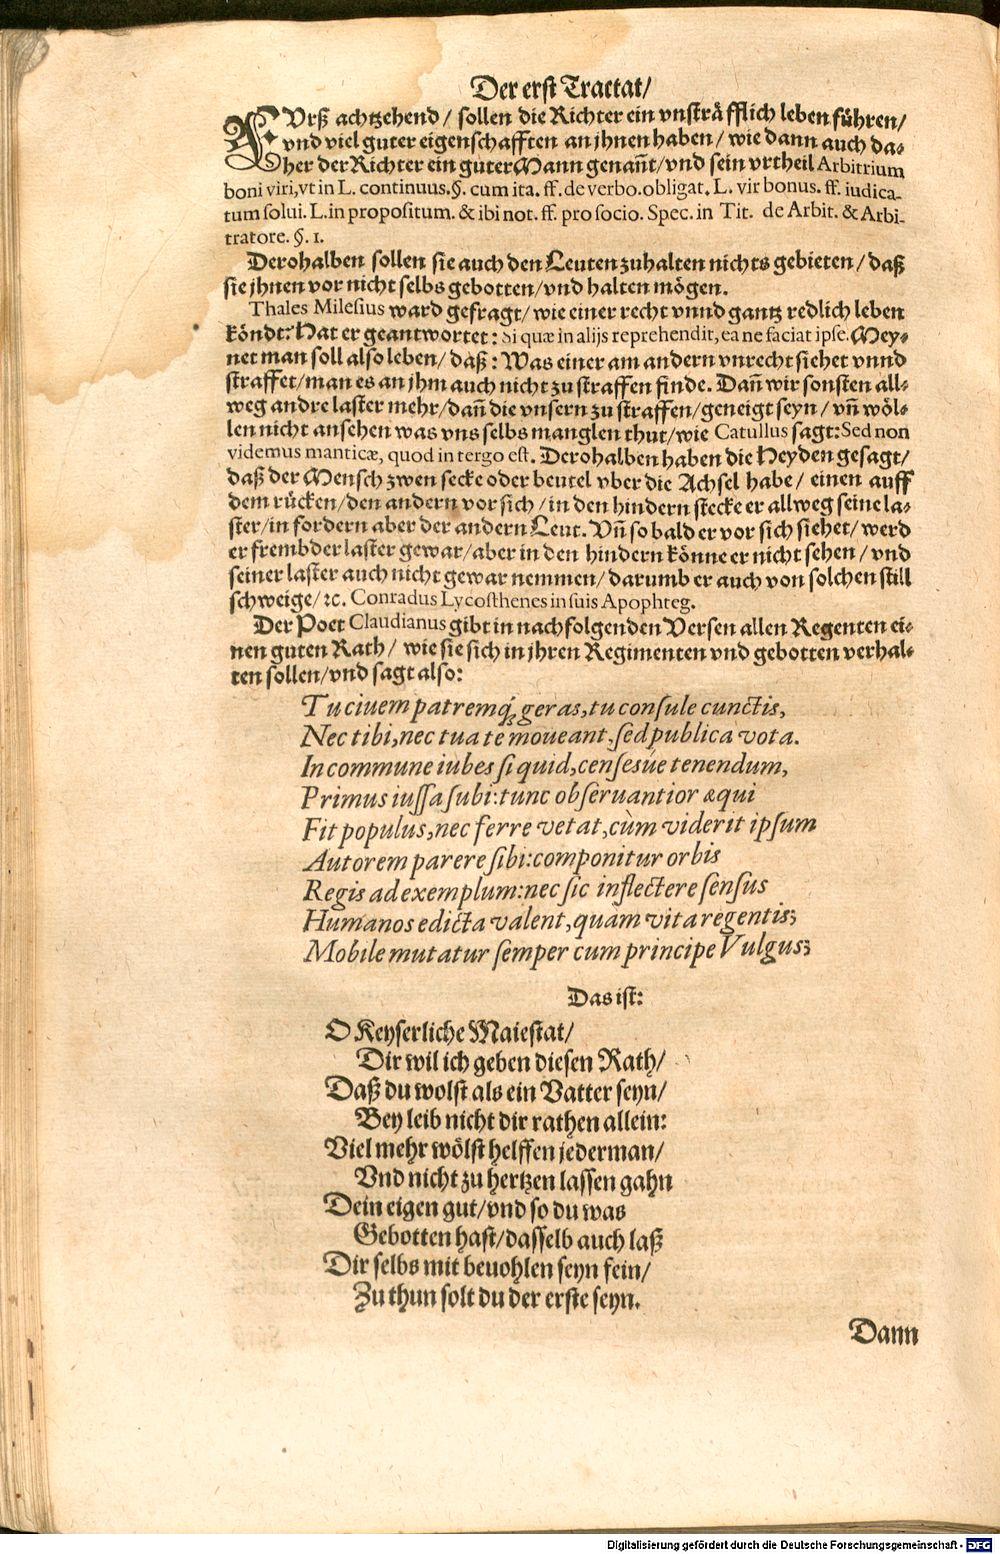 Der erst Tractat/
FUrß achtzehend / sollen die Richter ein vnsträfflich leben führen/
vnd viel guter eigenschafften an jhnen haben / wie dann auch da-
her der Richter ein guter Mann genañt/ vnd sein vrtheil Arbitrium
boni viri, vt in L. continuus. §. cum ita. ff. de verbo. obligat. L. vir bonus. ff. iudica-
tum solui. L. in propositum. & ibi not. ff. pro socio. Spec. in Tit. de Arbit. & Arbi-
tratore. §. 1.
Derohalben sollen sie auch den Leuten zuhalten nichts gebieten / daß
sie jhnen vor nicht selbs gebotten/ vnd halten mögen.
Thales Milesius ward gefragt/ wie einer recht vnnd gantz redlich leben
köndt: Hat er geantwortet: Si quæ in alijs reprehendit, ea ne faciat ipse. Mey-
net man soll also leben/ daß: Was einer am andern vnrecht siehet vnnd
straffet/ man es an jhm auch nicht zu straffen finde. Dañ wir sonsten all-
weg andre laster mehr/ dañ die vnsern zu straffen/ geneigt seyn / vñ wöl-
len nicht ansehen was vns selbs manglen thut/ wie Catullus sagt: Sed non
videmus manticæ, quod in tergo est. Derohalben haben die Heyden gesagt/
daß der Mensch zwen secke oder beutel vber die Achsel habe / einen auff
dem rücken/ den andern vor sich / in den hindern stecke er allweg seine la-
ster/ in fordern aber der andern Leut. Vñ so bald er vor sich siehet/ werd
er frembder laster gewar/ aber in den hindern könne er nicht sehen / vnd
seiner laster auch nicht gewar nemmen/ darumb er auch von solchen still
schweige/ ꝛc. Conradus Lycosthenes in suis Apophteg.
Der Poet Claudianus gibt in nachfolgenden Versen allen Regenten ei-
nen guten Rath/ wie sie sich in jhren Regimenten vnd gebotten verhal-
ten sollen/ vnd sagt also:
Tu ciuem patremq́; geras, tu consule cunctis,
Nec tibi, nec tua te moueant, sed publica vota.
In commune iubes si quid, censesúe tenendum,
Primus iussa subi: tunc obseruantior æqui
Fit populus, nec ferre vetat, cùm viderit ipsum
Autorem parere sibi: componitur orbis
Regis ad exemplum: nec sic inflectere sensus
Humanos edicta valent, quàm vita regentis;
Mobile mutatur semper cum principe Vulgus;
Das ist:
O Keyserliche Maiestat/
Dir wil ich geben diesen Rath/
Daß du wolst als ein Vatter seyn/
Bey leib nicht dir rathen allein:
Viel mehr wölst helffen jederman/
Vnd nicht zu hertzen lassen gahn
Dein eigen gut/ vnd so du was
Gebotten hast/ dasselb auch laß
Dir selbs mit beuohlen seyn fein/
Zu thun solt du der erste seyn.
Dann
Digitalisierung gefördert durch die Deutsche Forschungsgemeinschaft - DFG